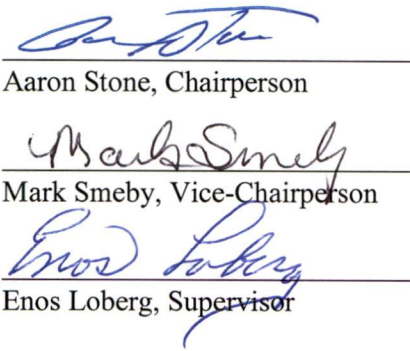 Aaron Stone, Chairperson
Mark Smeby
Mark Smeby, Vice-Chairperson
Enos Loberg
Enos Loberg, Supervisor